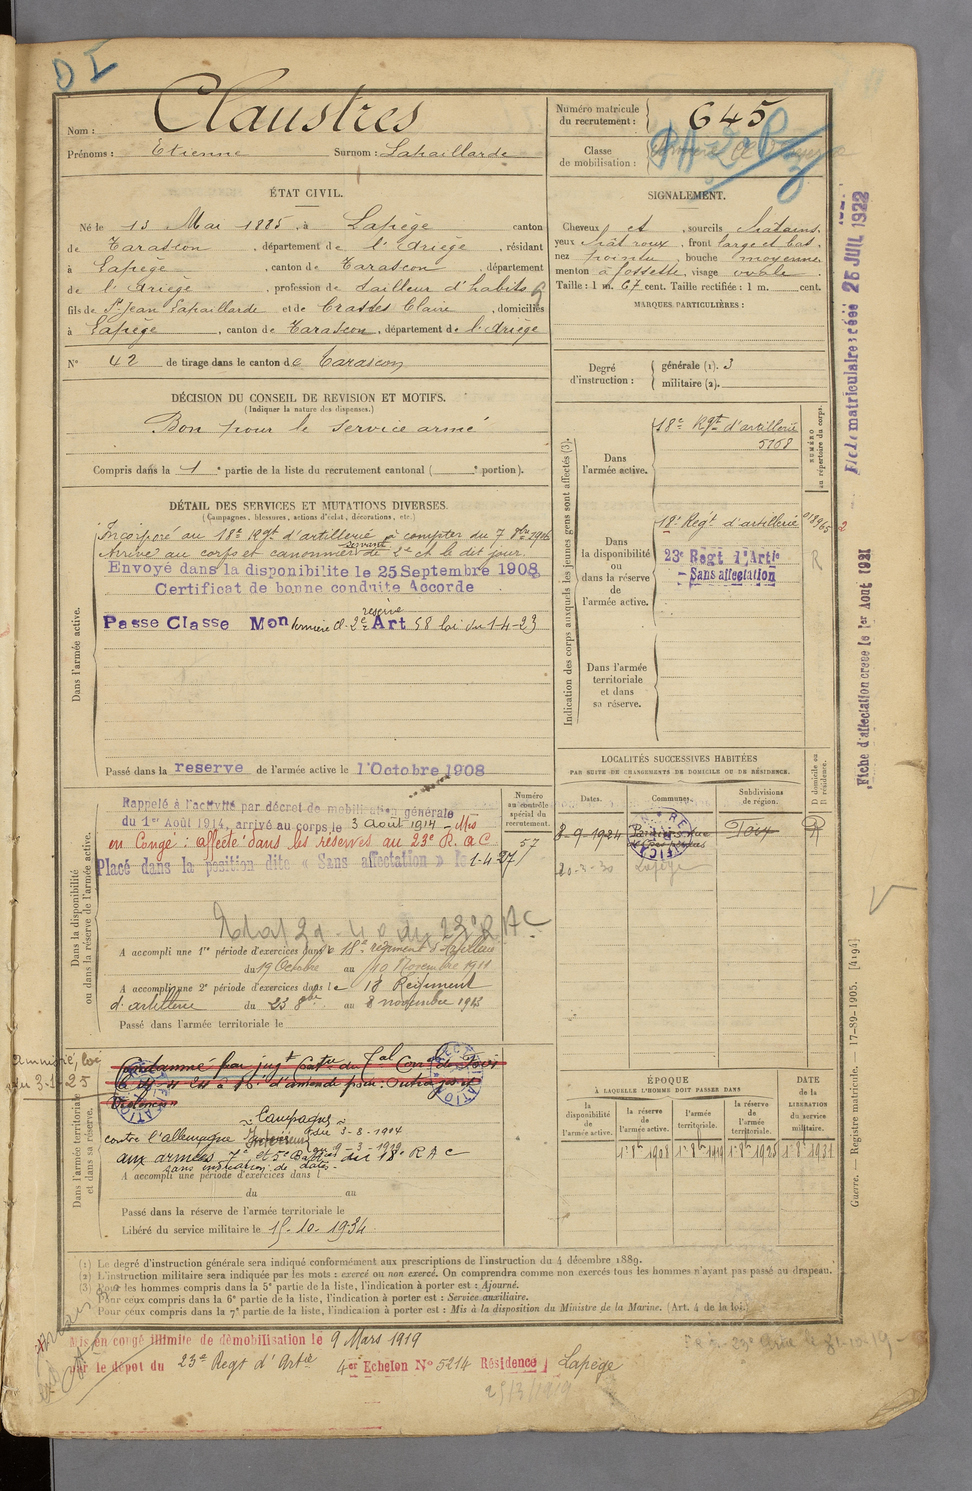 O I
Nom : Claustres
Prénoms : Etienne Surnom : Lapaillarde
Numéro matricule du recrutement : 645
Classe de mobilisation :
ÉTAT CIVIL.
Né le 13 Mai 1885, à Lapège canton
de Tarascon, département de l'Ariège, résidant
à Lapège, canton de Tarascon, département
de l'Ariège, profession de tailleur d'habits
fils de St Jean Lapaillarde et de Crastes Claire, domiciliés
à Lapège, canton de Tarascon, département de l'Ariège
N° 42 de tirage dans le canton de Tarascon
SIGNALEMENT.
Cheveux et, sourcils châtains,
yeux chât roux, front large et bas,
nez pointu, bouche moyenne
menton à fossette, visage ovale.
Taille : 1 m. 67 cent. Taille rectifiée : 1 m. cent.
MARQUES PARTICULIÈRES :
Degré d'instruction : générale (1). 3
militaire (2).
DÉCISION DU CONSEIL DE REVISION ET MOTIFS.
(Indiquer la nature des dispenses.)
Bon pour le service armé
Compris dans la 1e partie de la liste du recrutement cantonal ( e portion).
DÉTAIL DES SERVICES ET MUTATIONS DIVERSES.
(Campagnes, blessures, actions d'éclat, décorations, etc.)
Dans l'armée active.
Incorporé au 18e Régt d'artillerie à compter du 7 8bre 1906
Arrivé au corps et canonnier servant de 2e cl le dit jour.
Envoyé dans la disponibilite le 25 Septembre 1908
Certificat de bonne conduite Accorde
reserve
Passe Classe Mon
Art 58 loi du 1-4-23
Passé dans la reserve de l'armée active le 1 Octobre 1908
Indication des corps auxquels les jeunes gens sont affectés (3).
Dans l'armée active.
18e Régt d'artillerie
5168
NUMÉRO au répertoire du corps.
Dans la disponibilité ou dans la réserve de l'armée active.
18e Régt d'artillerie
23e Regt d'Artie
- Sans affectation
R
Dans l'armée territoriale et dans sa réserve.
Fiche matriculaire créée 25 JUIL 1922
Fiche d'affectation creee le 1er Aout 1921
LOCALITÉS SUCCESSIVES HABITÉES
PAR SUITE DE CHANGEMENTS DE DOMICILE OU DE RÉSIDENCE.
Dates. Communes. Subdivisions de région. D domicile ou R résidence.
8-9-1924 Foix R
20-2-30 Lapège
Dans la disponibilité ou dans la réserve de l'armée active.
Numéro au contrôle spécial du recrutement.
Rappelé à l'activité par décret de mobilisation générale
du 1er Août 1914, arrivé au corps le 3 Août 1914 - Mis
en Congé : affecté dans les réserves au 23e R. a C
57
Placé dans la position dite « Sans affectation » le 1-4-27
A accompli une 1re période d'exercices dans le 18e régiment d'Artillerie
du 19 Octobre au 10 Novembre 1911
A accompli une 2e période d'exercices dans le 18 Regiment
d'artillerie du 23 8bre au 8 novembre 1913
Passé dans l'armée territoriale le
Amnistié, loi du 3-1-25
Dans l'armée territoriale et dans sa réserve.
Campagnes
contre l'allemagne Intérieur
aux armées 7e et 5e du 18e R A C
sans indication de dates
A accompli une période d'exercices dans l
du au
Passé dans la réserve de l'armée territoriale le
Libéré du service militaire le 15-10-1934
ÉPOQUE
À LAQUELLE L'HOMME DOIT PASSER DANS
la disponibilité de l'armée active. la réserve de l'armée active. l'armée territoriale. la réserve de l'armée territoriale.
DATE de la LIBÉRATION du service militaire.
1er 8bre 1908 1er 8bre 1919 1er 8bre 1925 1er 8bre 1931
Guerre. — Registre matricule. 17-89-1905. [4194]
(1) Le degré d'instruction générale sera indiqué conformément aux prescriptions de l'instruction du 4 décembre 1889.
(2) L'instruction militaire sera indiquée par les mots : exercé ou non exercé. On comprendra comme non exercés tous les hommes n'ayant pas passé au drapeau.
(3) Pour les hommes compris dans la 5e partie de la liste, l'indication à porter est : Ajourné.
Pour ceux compris dans la 6e partie de la liste, l'indication à porter est : Service auxiliaire.
Pour ceux compris dans la 7e partie de la liste, l'indication à porter est : Mis à la disposition du Ministre de la Marine. (Art. 4 de la loi.)
Mis en congé illimite de démobilisation le 9 Mars 1919
par le dépot du 23e Regt d'Artie 4er Echelon N° 5214 Résidence Lapège
25/3/1919